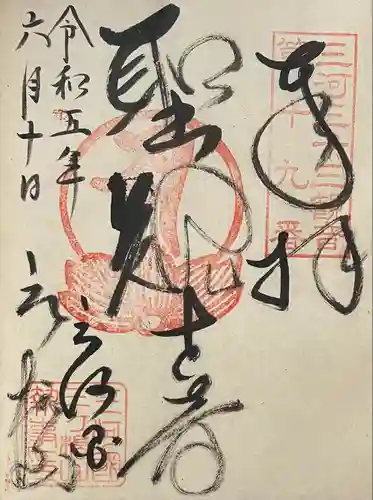 奉拝
三河三十三観音
第十九番
聖観世音
三河国
令和五年
六月十日